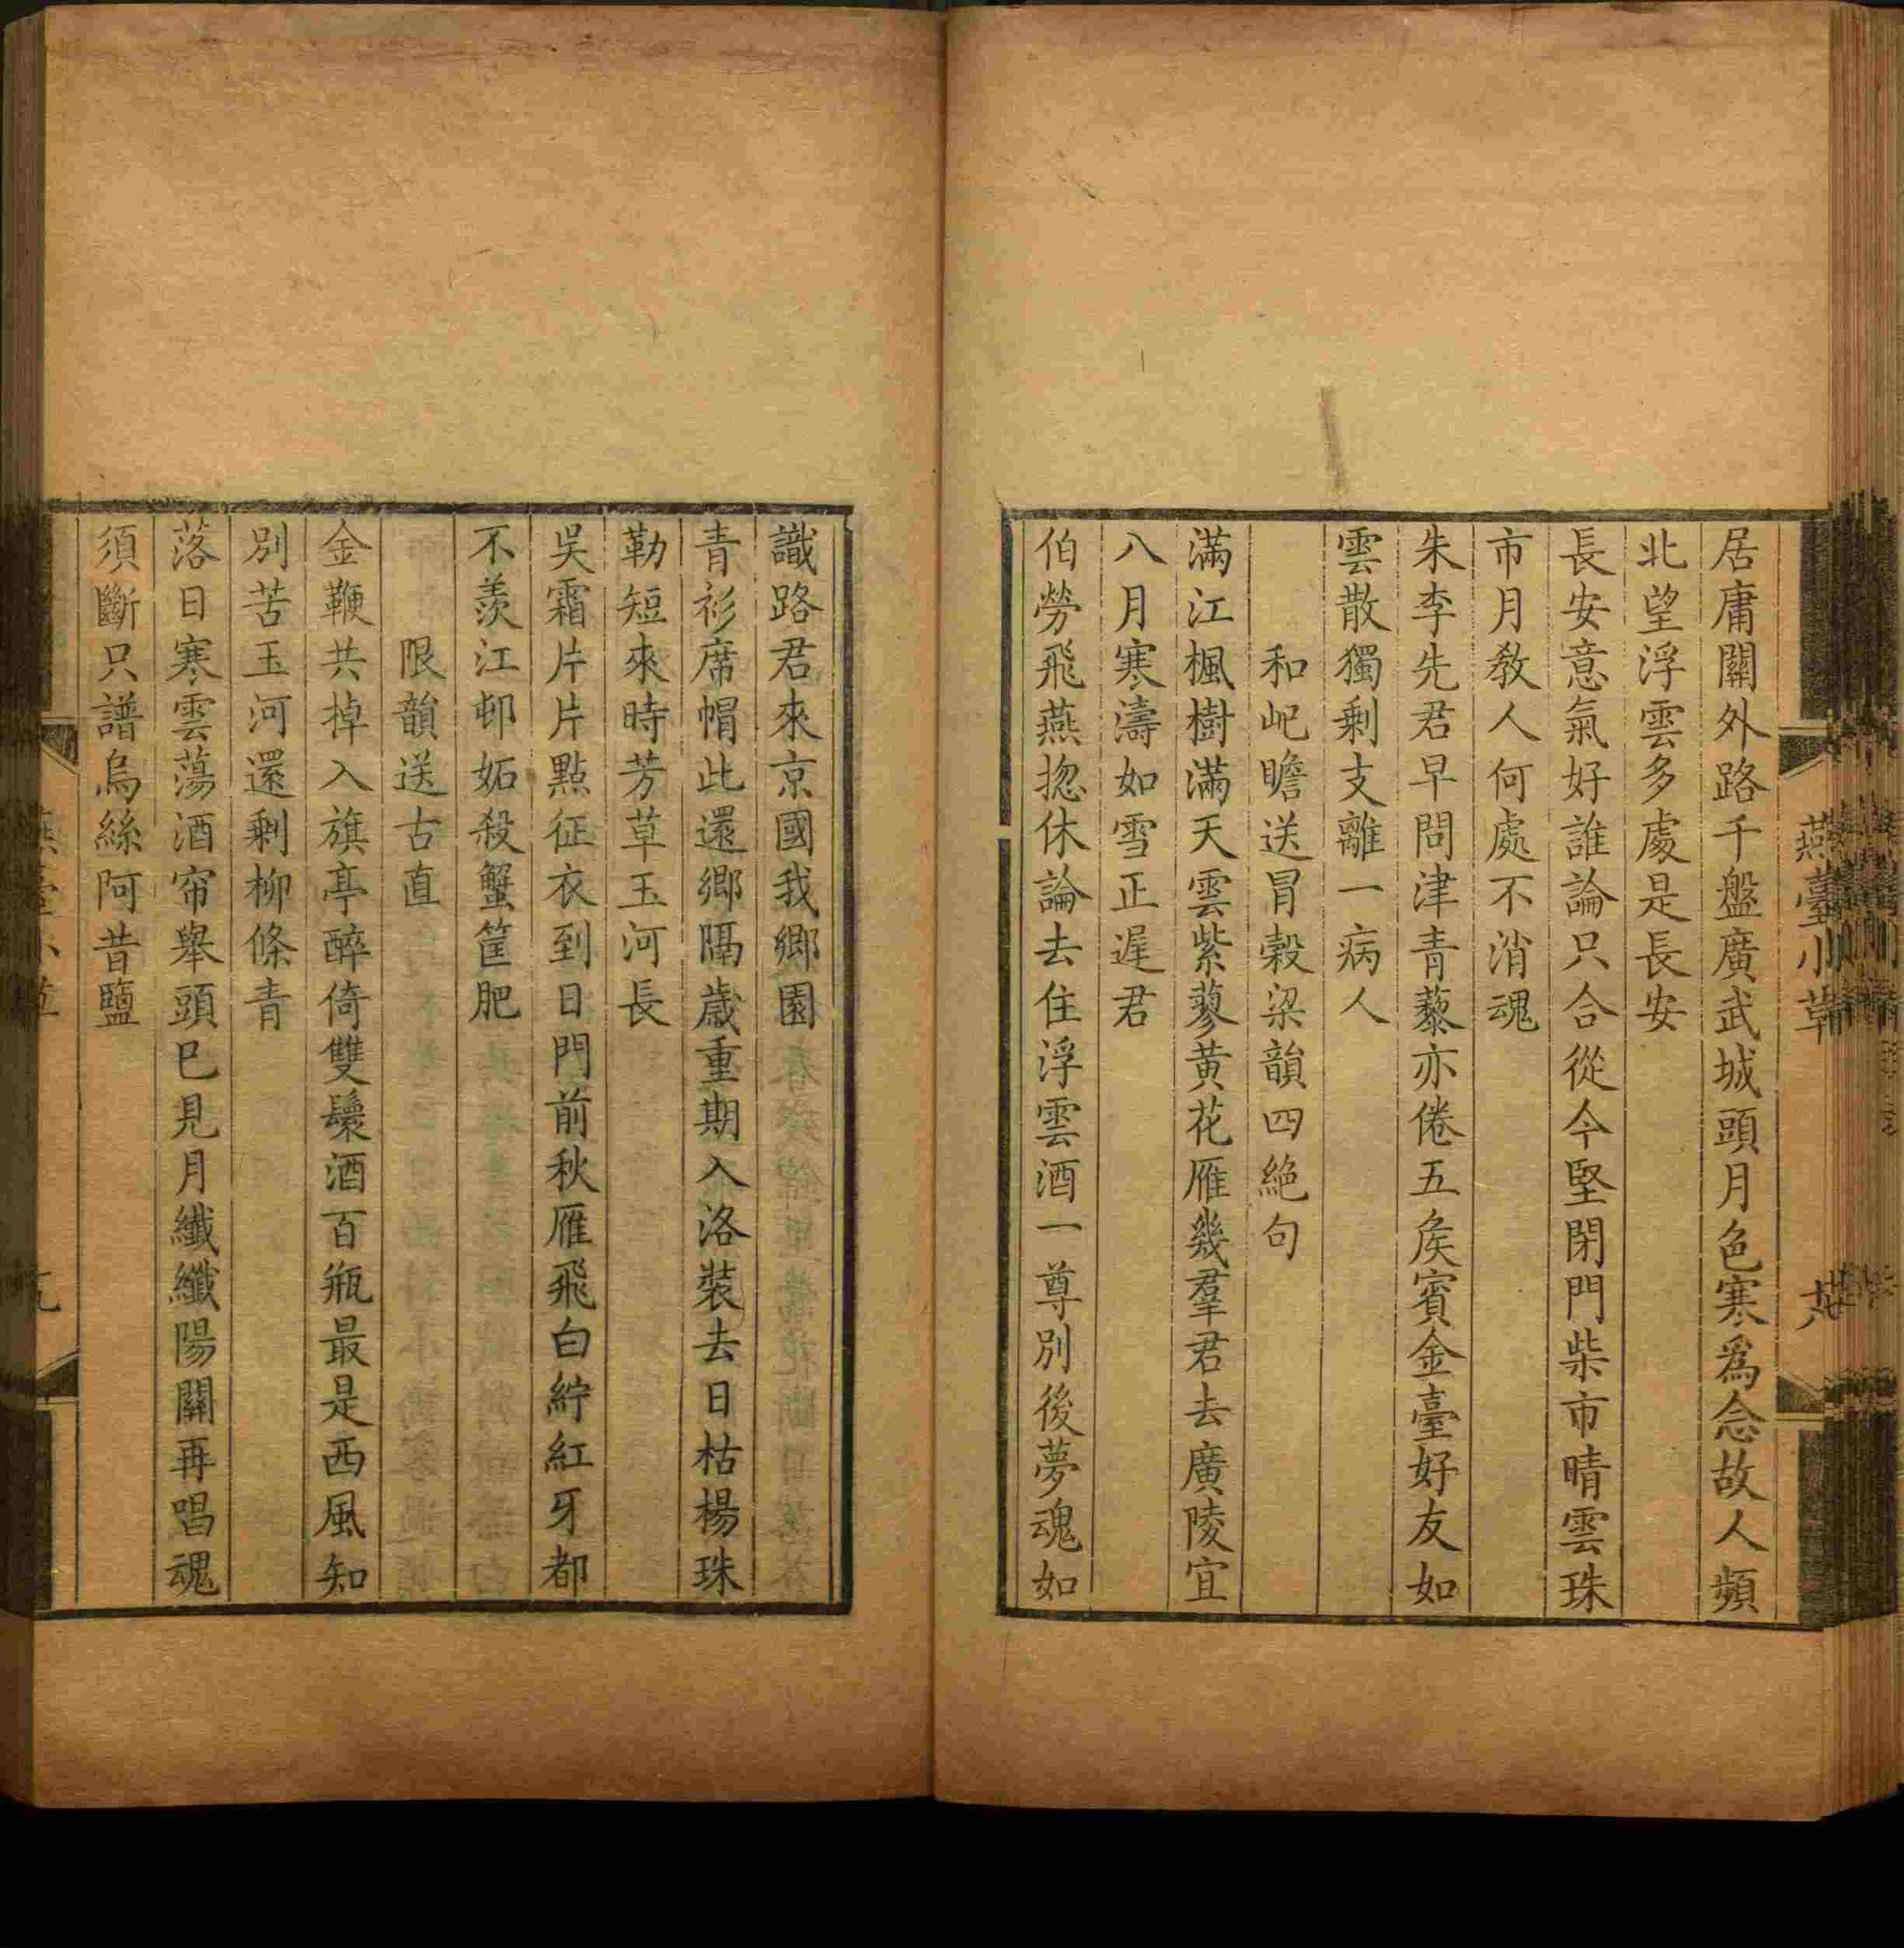 燕臺小草
居庸關外路千盤廣武城頭月色寒爲念故人頻
北望浮雲多處是長安
長安意氣好誰論只合從今堅閉門柴市晴雲珠
市月教人何處不消魂
朱李先君早問津青藜亦倦五矦賓金臺好友如
雲散獨剩支離一病人
和屺瞻送冒穀梁韻四絶句
滿江楓樹滿天雲紫蓼黄花雁幾羣君去廣陵宜
八月寒濤如雪正遲君
伯勞飛燕揔休論去住浮雲酒一尊別後夢魂如
識路君來京國我鄉園
青衫席帽此還鄉隔歲重期入洛裝去日枯楊珠
勒短來時芳草玉河長
吳霜片片點征衣到日門前秋雁飛白紵紅牙都
不羨江邨妬殺蟹筐肥
限韻送古直
金鞭共掉入旗亭醉倚雙鬟酒百瓶最是西風知
別苦玉河還剩柳條青
落日寒雲蕩酒帘舉頭巳見月纖纖陽關再唱魂
須斷只譜烏絲阿昔鹽